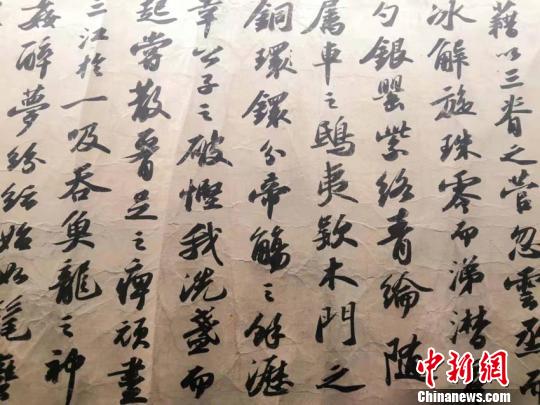 藉以三脊之菅忽雲烝而
冰解旋珠零而涕潸
勺銀罌紫絡青綸隨
属車之鴟夷款木門之
銅環鐶分帝觴之餘瀝
幸公子之破慳我洗盞而
起嘗散足之痹頑盡
三江於一吸吞魚龍之神
姦醉夢紛紜始如髦蠻
中新网
WWW.CHINANEWS.COM